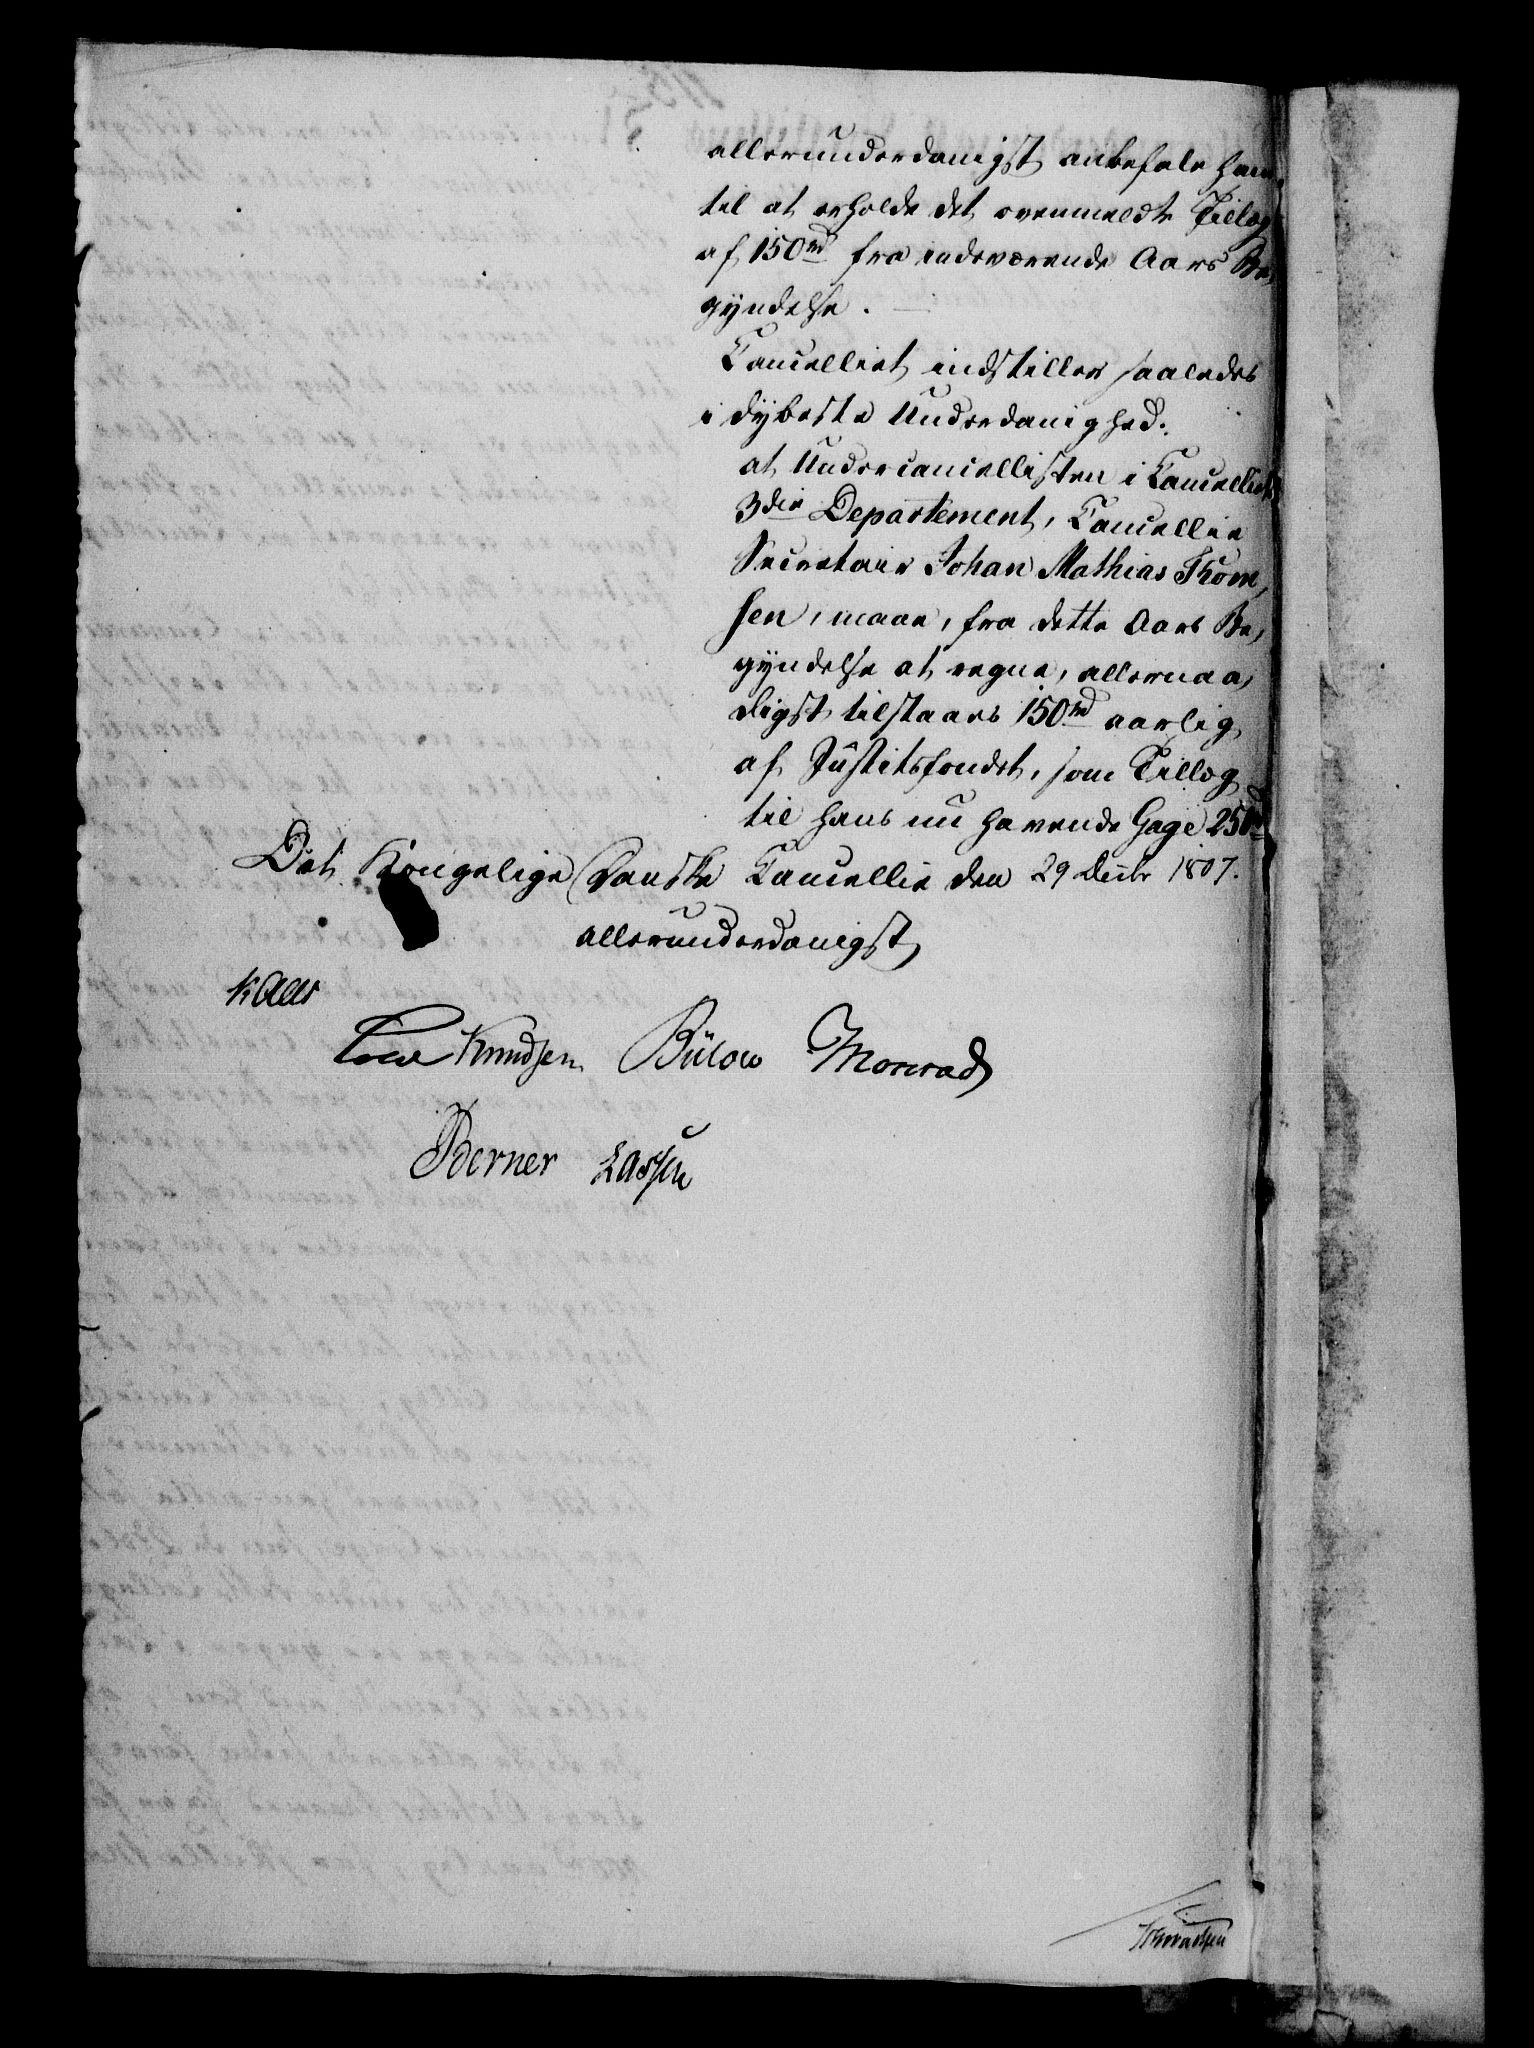 allerunderdanigst anbefale ham
til at erholde det ovenmeldte Tillæg
af 150 rd fra indeværende Aars Be,
gyndelse.
Cancelliet indstiller saaledes
i dybeste Underdanighed:
at Undercancellisten i Cancelliets
3die Departement, Cancellie
Secretair Johan Mathias Thom,
sen, maae, fra dette Aars Be,
gyndelse at regne, allernaa,
digst tilstaaes 150 rd aarlig
af Justitsfondet, som Tillæg
til hans nu havende Gage 250 rd
Det Kongelige Danske Cancellie den 29 Decbr 1807.
allerunderdanigst
Kaas
Cold Knudsen Bülow Monrad
Berner Lassen